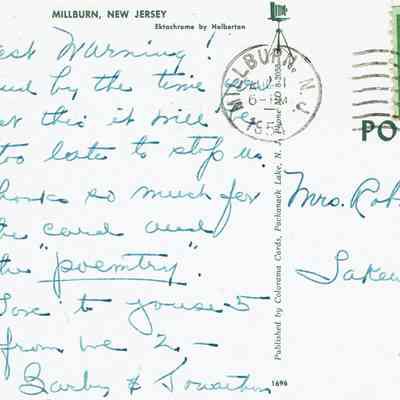 MILLBURN, NEW JERSEY
Ektachrome by Halberton
est Warning!
and by the time you
get this it will be
too late to stop us.
Thanks so much for
the card and
the "poemtry".
Love to youse 5
from we 2 -
Barby &
MILLBURN, N.J.
Published by Colorama Cards, Packanack Lake, N. J. Phone MO 8-2058
PO
Mrs. Rob
Lakew
1696